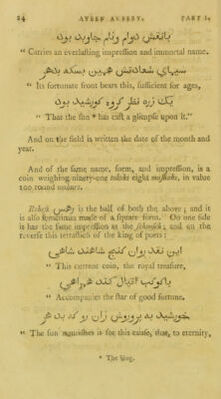 24 AYEEN AKBERY. PART I.
" Carries an everlasting impression and immortal name.
" Its fortunate front bears this, sufficient for ages,
یک ذره نظر کرده خورشید بود
" That the sun * has cast a glimpse upon it."
And on the field is written the date of the month and
year.
And of the same name, form, and impression, is a
coin weighing ninety-one tolahs eight mashahs, in value
100 round mohurs.
Rehess is the half of both the above; and it
is also sometimes made of a square form. On one side
it has the same impression as the and on the
reverse this tetrastich of the king of poets:
این نقد روان گنج شاهنشاهی
" This current coin, the royal treasure,
با کوکب اقبال کند همراهی
" Accompanies the star of good fortune.
خورشید به پرورش زان رو که بدهر
" The sun nourishes it for this cause, that, to eternity,
* The king.